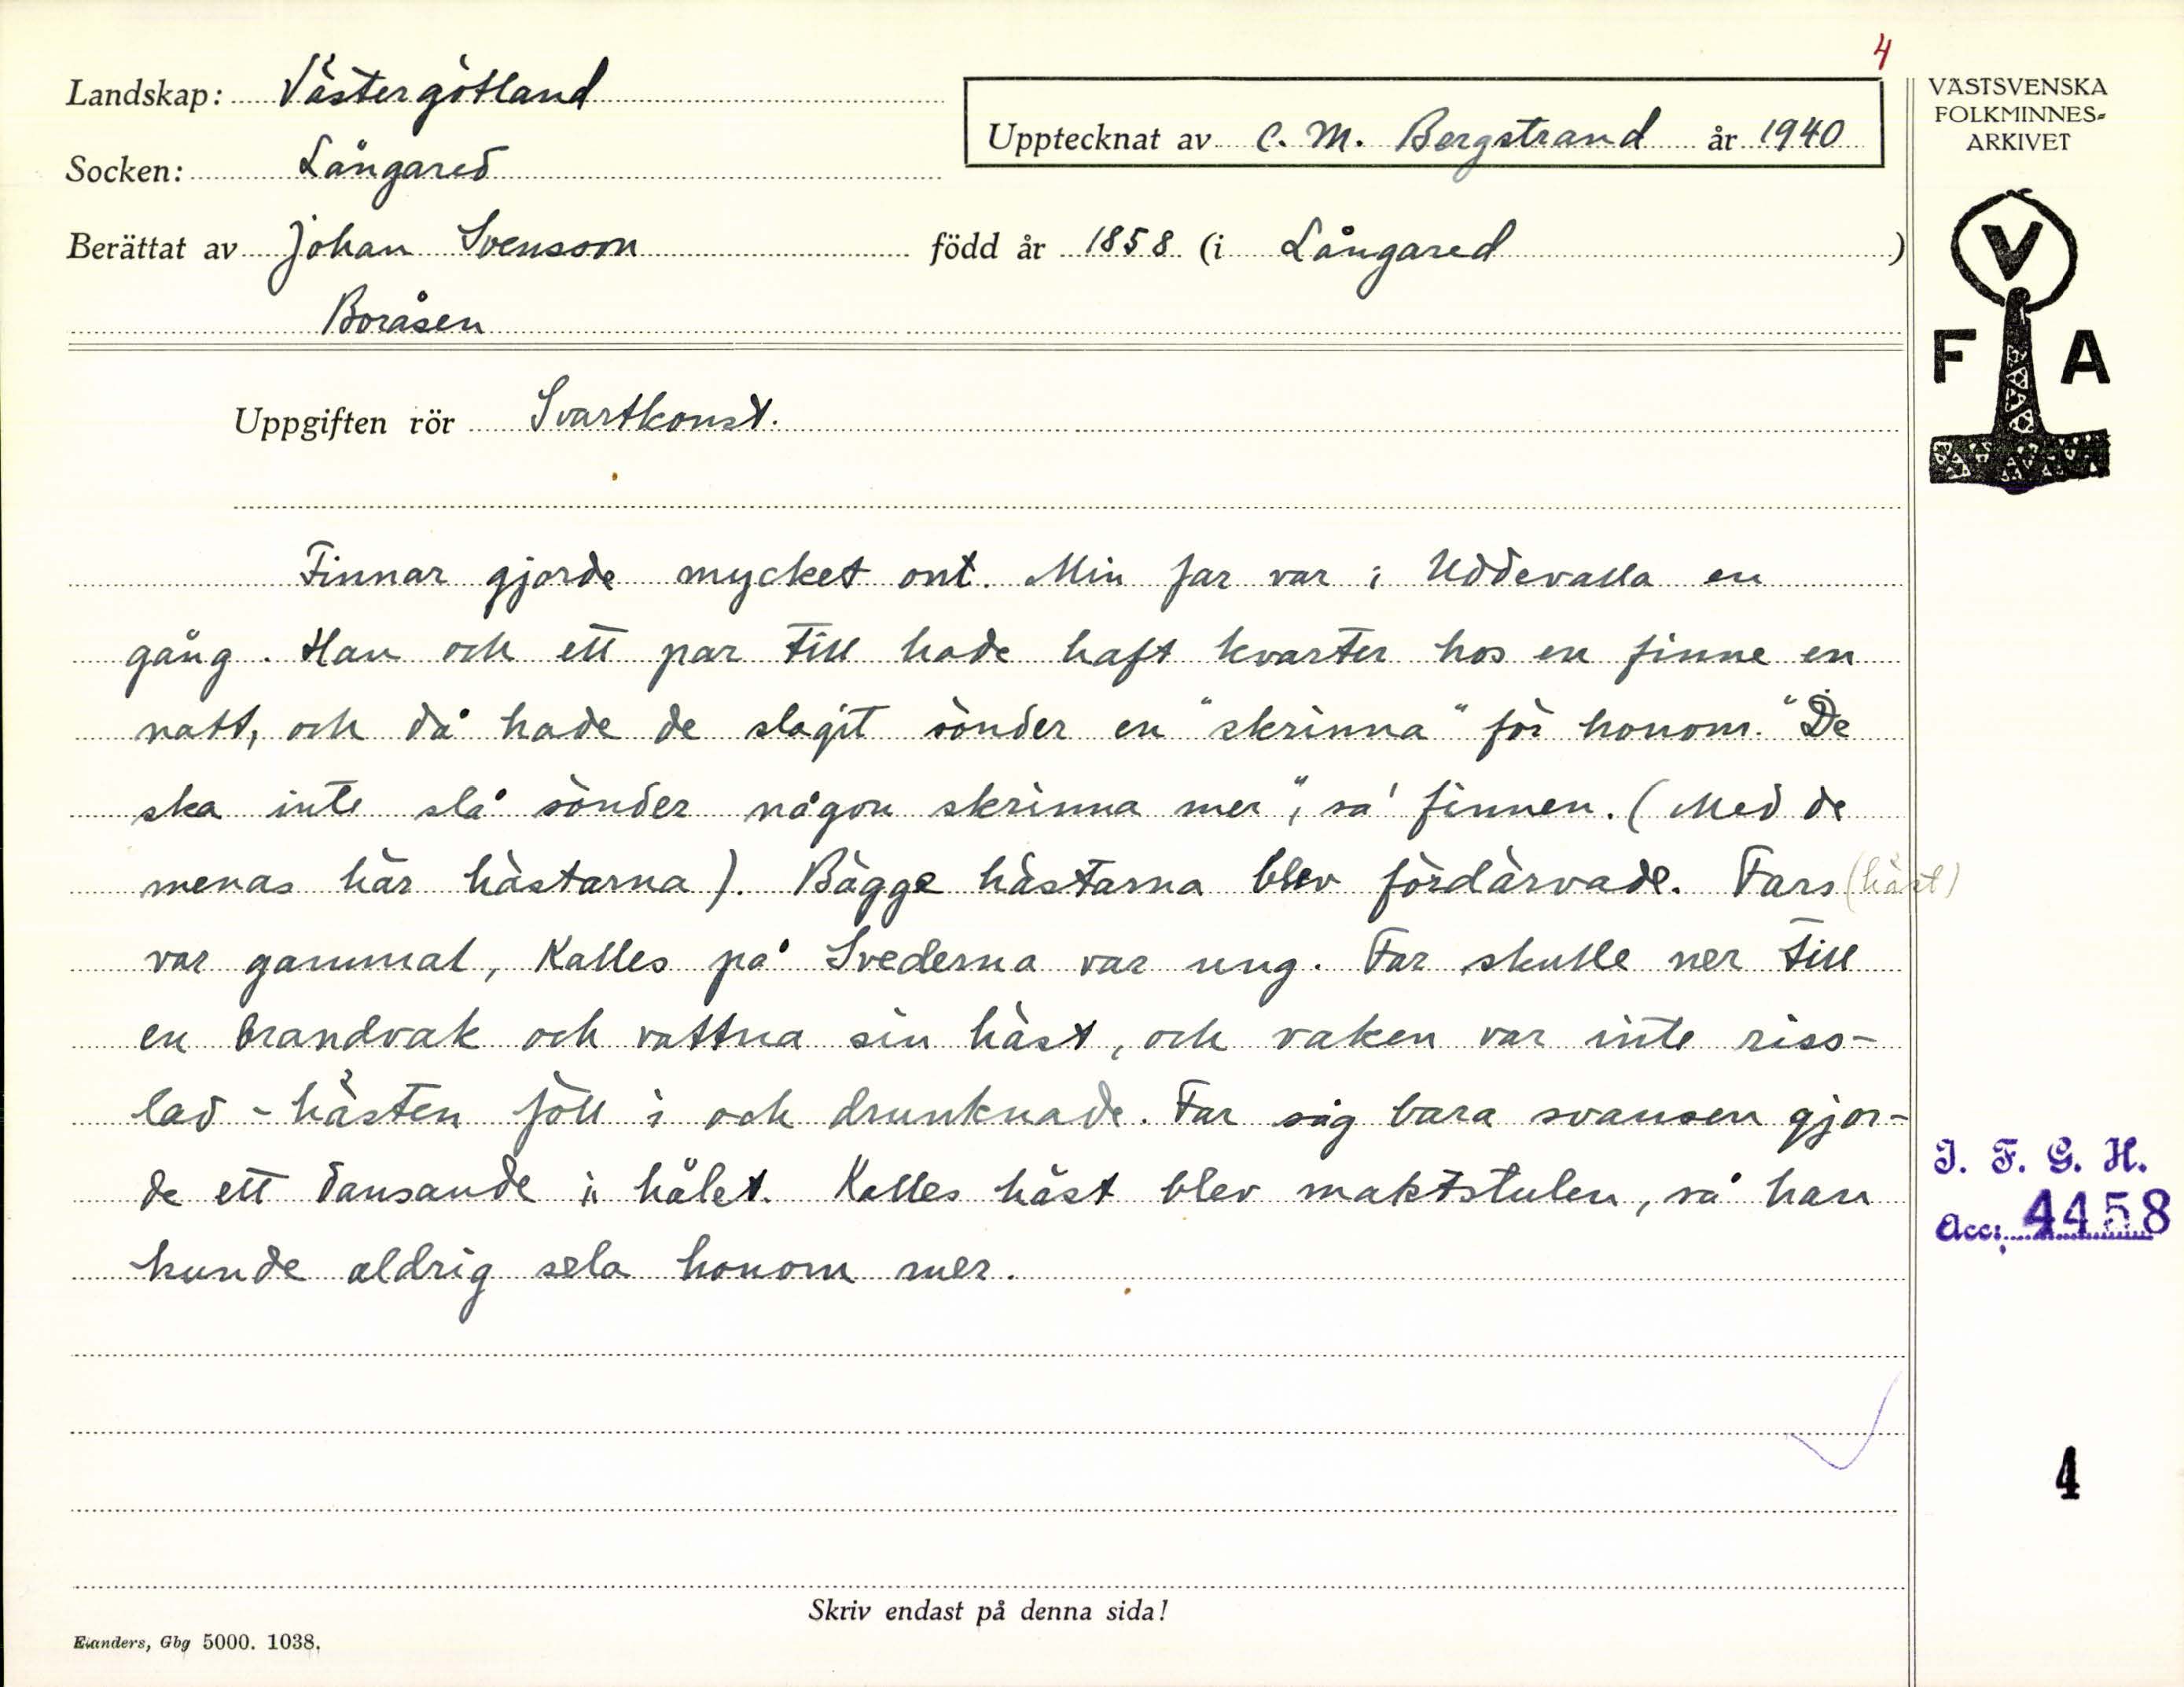 4
Landskap: Västergötland
Upptecknat av C. M. Bergstrand år 1940
Socken: Långared
Berättat av Johan Svensson född år 1858 (i Långared)
Boråsen
Uppgiften rör Svartkonst.
Finnar gjorde mycket ont. Min far var i Uddevalla en
gång. Han och ett par till hade haft kvarter hos en finne en
natt, och då hade de slagit sönder en "skrinna" för honom. "De
ska inte slå sönder någon skrinna mer", sa' finnen. (Med de
menas här hästarna). Bägge hästarna blev fördärvade. Fars (häst)
var gammal, Kalles på Svederna var ung. Far skulle ner till
en brandvak och vattna sin häst, och vaken var inte riss-
lad - hästen föll i och drunknade. Far såg bara svansen gjor-
de ett dansande i hålet. Kalles häst blev maktstulen, så han
kunde aldrig sela honom mer.
Skriv endast på denna sida!
Elanders, Gbg 5000. 1038.
VÄSTSVENSKA
FOLKMINNES-
ARKIVET
V
F A
I. F. G. H.
Acc: 4458
4